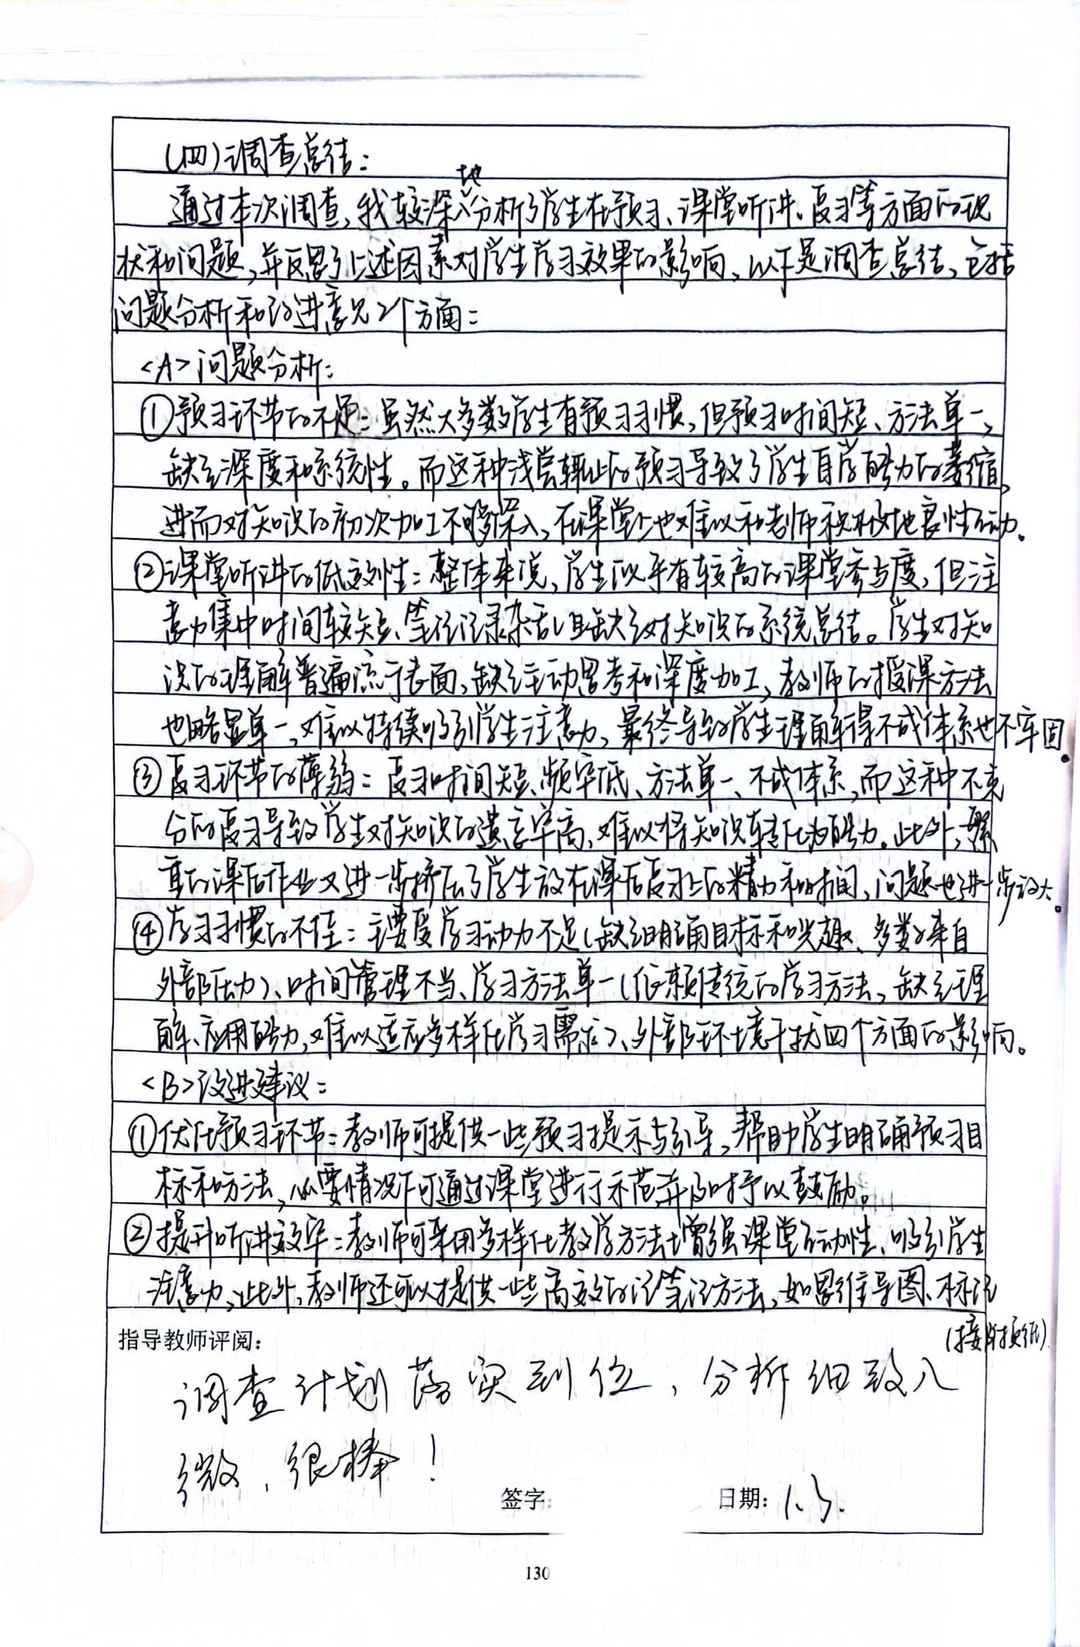 (四)调查总结：
通过本次调查，我较深入地分析了学生在预习、课堂听讲、复习等方面的现
状和问题，并反思了上述因素对学生学习效果的影响，以下是调查总结，包括
问题分析和改进意见2个方面：
<A>问题分析：
①预习环节的不足：虽然大多数学生有预习习惯，但预习时间短、方法单一，
缺乏深度和系统性。而这种浅尝辄止的预习导致了学生自学能力的萎缩，
进而对知识的初次加工不够深入，在课堂上也难以和老师积极地良性互动。
②课堂听讲的低效性：整体来说，学生似乎有较高的课堂参与度，但注
意力集中时间较短、笔记记录杂乱且缺乏对知识的系统总结。学生对知
识的理解普遍流于表面，缺乏主动思考和深度加工，教师的授课方法
也略显单一，难以持续吸引学生注意力，最终导致学生理解得不成体系也不牢固。
③复习环节的薄弱：复习时间短、频率低、方法单一、不成体系，而这种不充
分的复习导致学生对知识的遗忘率高，难以将知识转化为能力。此外，繁
重的课后作业又进一步挤压了学生放在课后复习上的精力和时间，问题也进一步放大。
④学习习惯的不佳：主要受学习动力不足(缺乏明确目标和兴趣、多数来自
外部压力)、时间管理不当、学习方法单一(依赖传统的学习方法，缺乏理
解、应用能力，难以适应多样化学习需求)、外部环境干扰四个方面的影响。
<B>改进建议：
①优化预习环节：教师可提供一些预习提示与引导，帮助学生明确预习目
标和方法，必要情况下可通过课堂进行示范并及时予以鼓励。
②提升听讲效率：教师可采用多样化教学方法增强课堂互动性，吸引学生
注意力，此外，教师还可以提供一些高效的记笔记方法，如思维导图、标记
(接附页纸)
指导教师评阅：
调查计划落实到位，分析细致入
微，很棒！
签字：
日期：1.3.
130